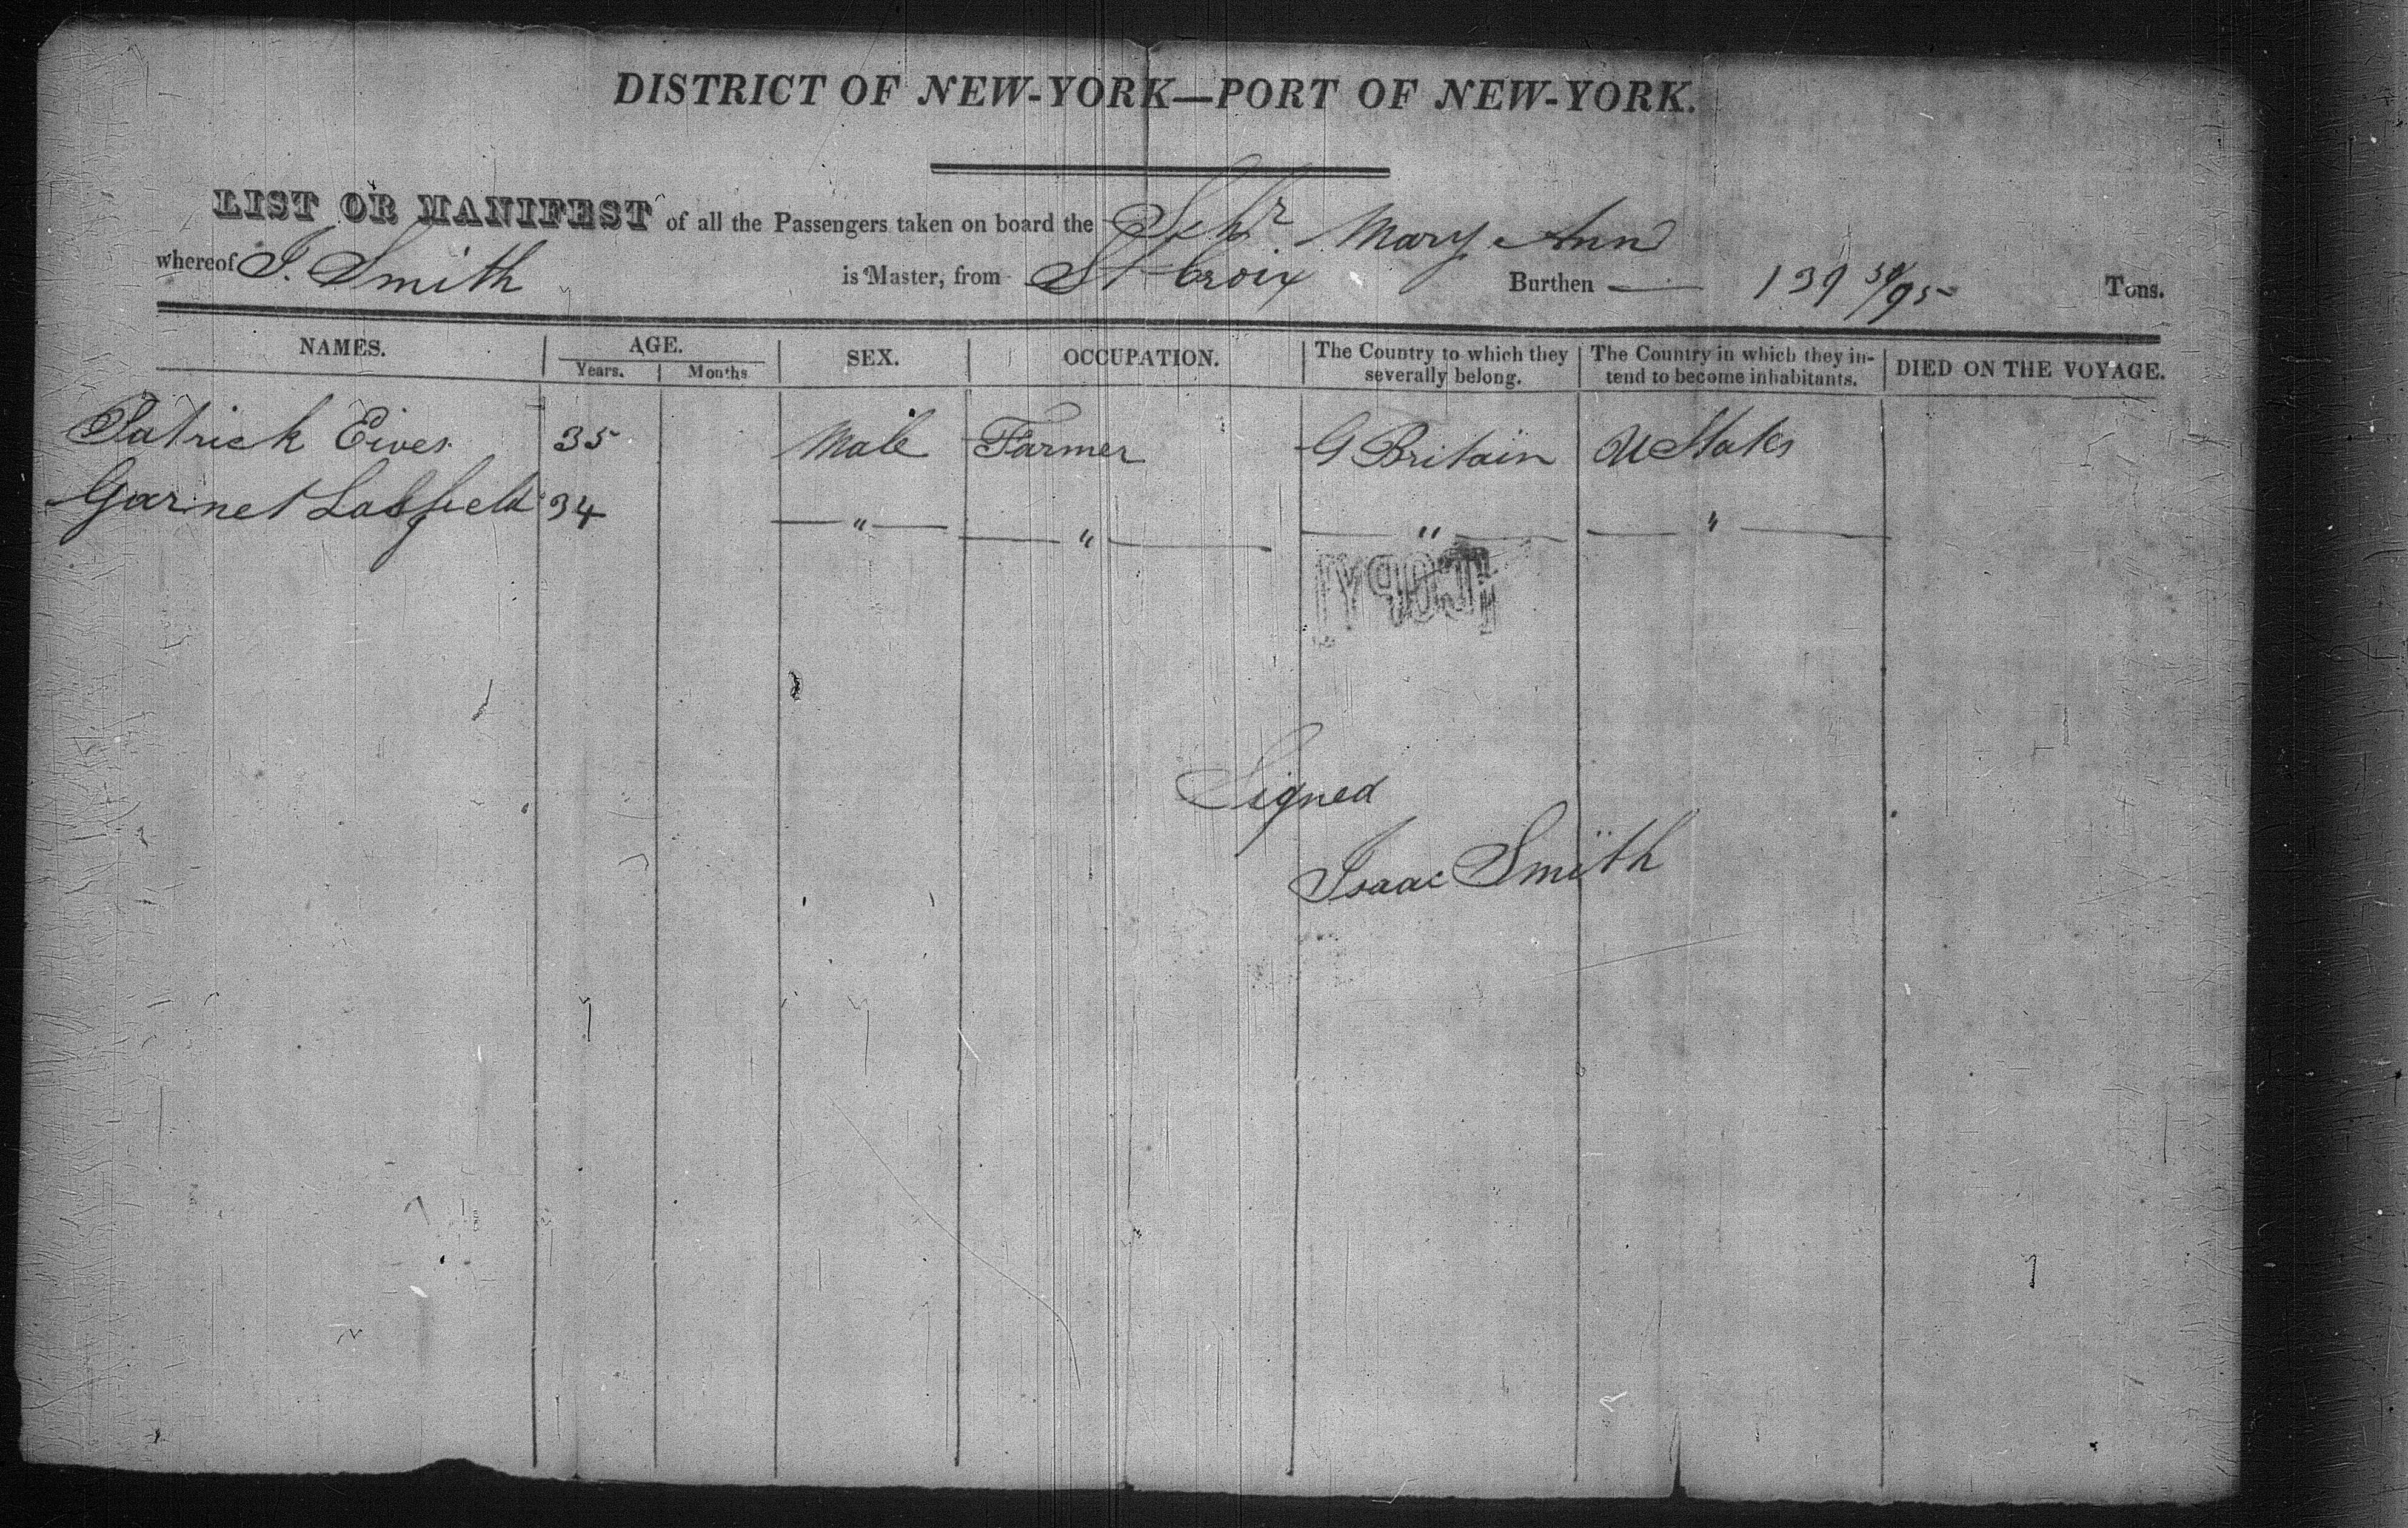 DISTRICT OF NEW-YORK—PORT OF NEW-YORK.
LIST OR MANIFEST of all the Passengers taken on board the Schr. Mary Ann
whereof I. Smith is Master, from St Croix Burthen — 139 /95 Tons.
NAMES. AGE. SEX. OCCUPATION. The Country to which they severally belong. The Country in which they in-tend to become inhabitants. DIED ON THE VOYAGE.
Years. Months
Patrick Eives 35 Male Farmer G Britain U States
Garnet 34 — " — — " — — " — — " —
COPY
Signed
Isaac Smith